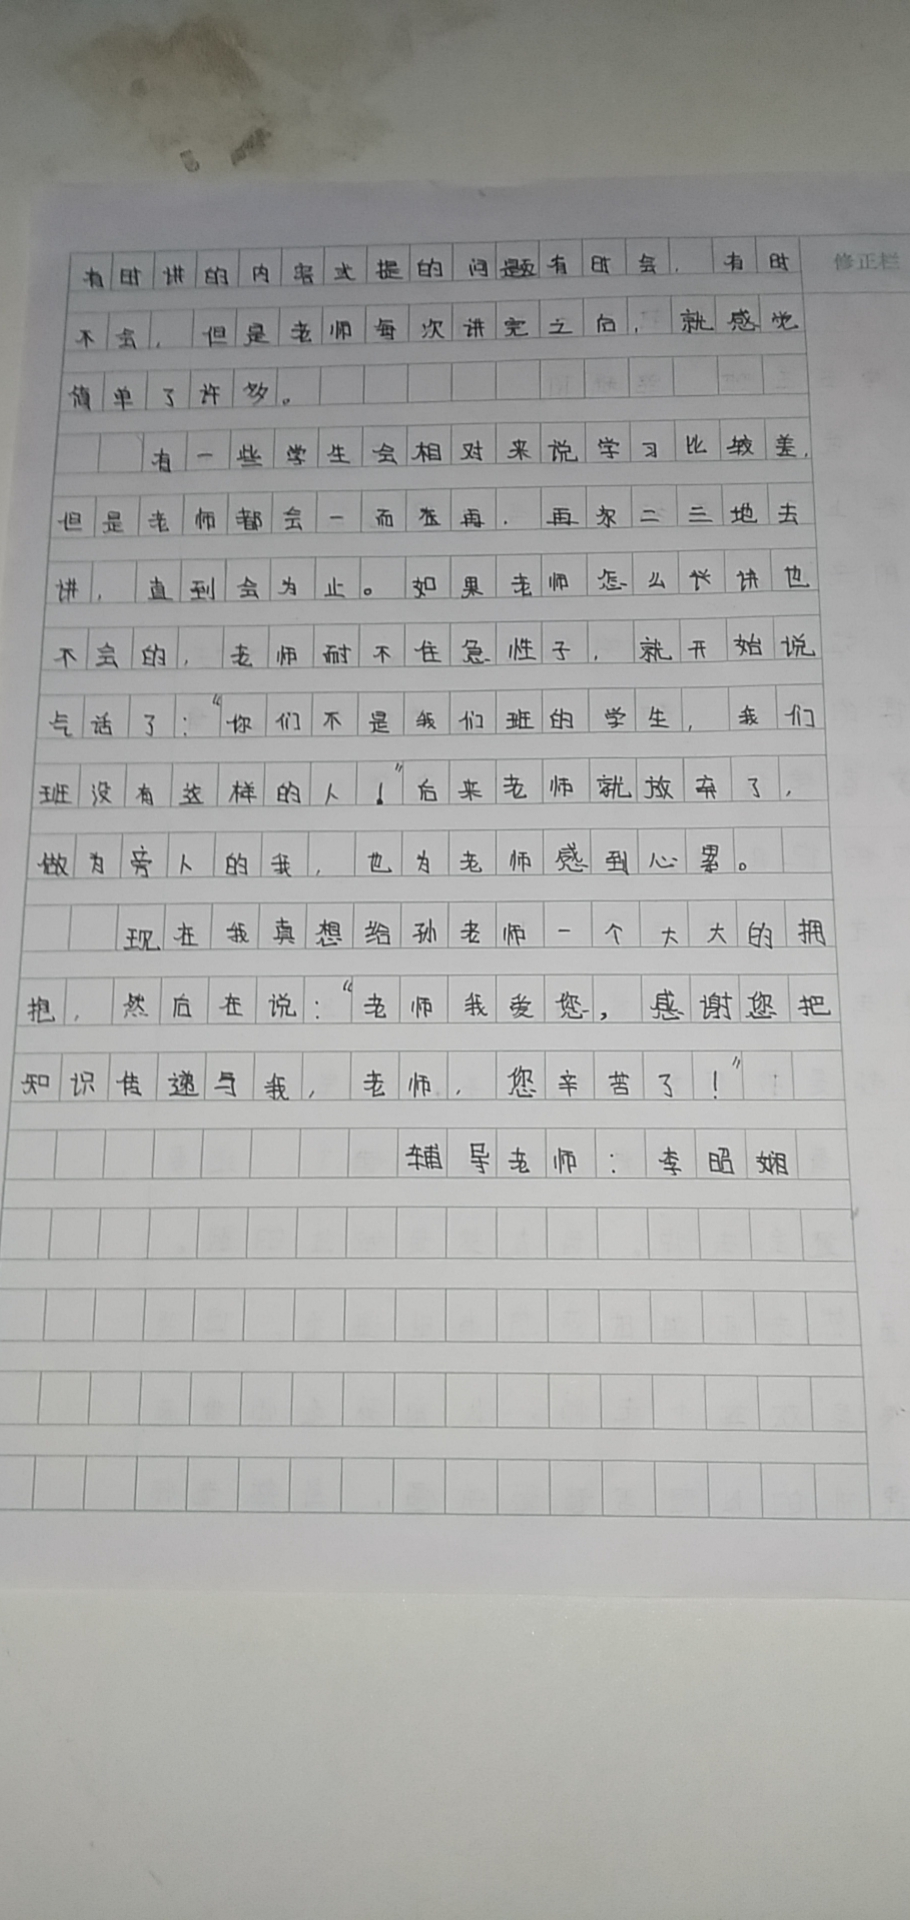 有时讲的内容或提的问题有时会，有时
修正栏
不会，但是老师每次讲完之后，就感觉
简单了许多。
有一些学生会相对来说学习比较差，
但是老师都会一而在再，再次二三地去
讲，直到会为止。如果老师怎么长讲也
不会的，老师耐不住急性子，就开始说
气话了：“你们不是我们班的学生，我们
班没有这样的人！”后来老师就放弃了，
做为旁人的我，也为老师感到心累。
现在我真想给孙老师一个大大的拥
抱，然后在说：“老师我爱您，感谢您把
知识传递与我，老师，您辛苦了！”
辅导老师：李昭娴